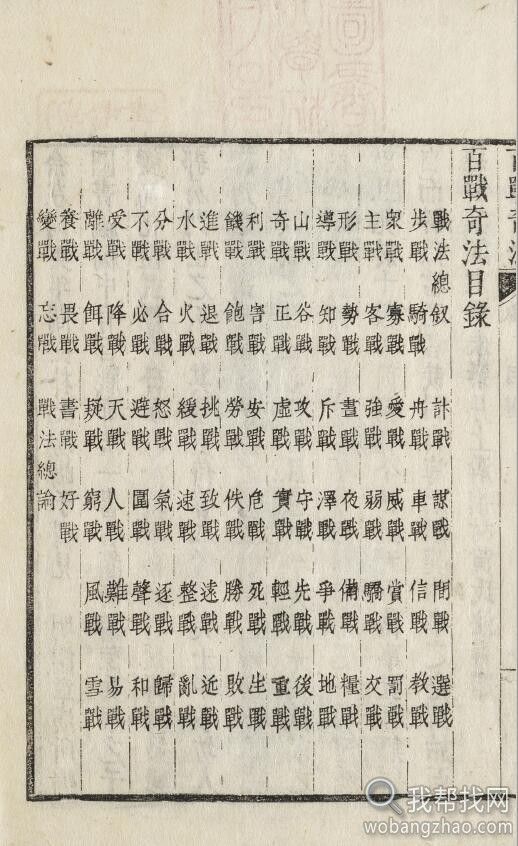 百戰奇法目錄
戰法總叙 計戰 謀戰 間戰 選戰
步戰 騎戰 舟戰 車戰 信戰 教戰
衆戰 寡戰 愛戰 威戰 賞戰 罰戰
主戰 客戰 強戰 弱戰 驕戰 交戰
形戰 勢戰 晝戰 夜戰 備戰 糧戰
導戰 知戰 斥戰 澤戰 爭戰 地戰
山戰 谷戰 攻戰 守戰 先戰 後戰
奇戰 正戰 虛戰 實戰 輕戰 重戰
利戰 害戰 安戰 危戰 死戰 生戰
饑戰 飽戰 勞戰 佚戰 勝戰 敗戰
進戰 退戰 挑戰 致戰 遠戰 近戰
水戰 火戰 緩戰 速戰 整戰 亂戰
分戰 合戰 怒戰 氣戰 逐戰 歸戰
不戰 必戰 避戰 圍戰 聲戰 和戰
受戰 降戰 天戰 人戰 難戰 易戰
離戰 餌戰 疑戰 窮戰 風戰 雪戰
養戰 畏戰 書戰 好戰
變戰 忘戰 戰法總論
我帮找网
wobangzhao.com